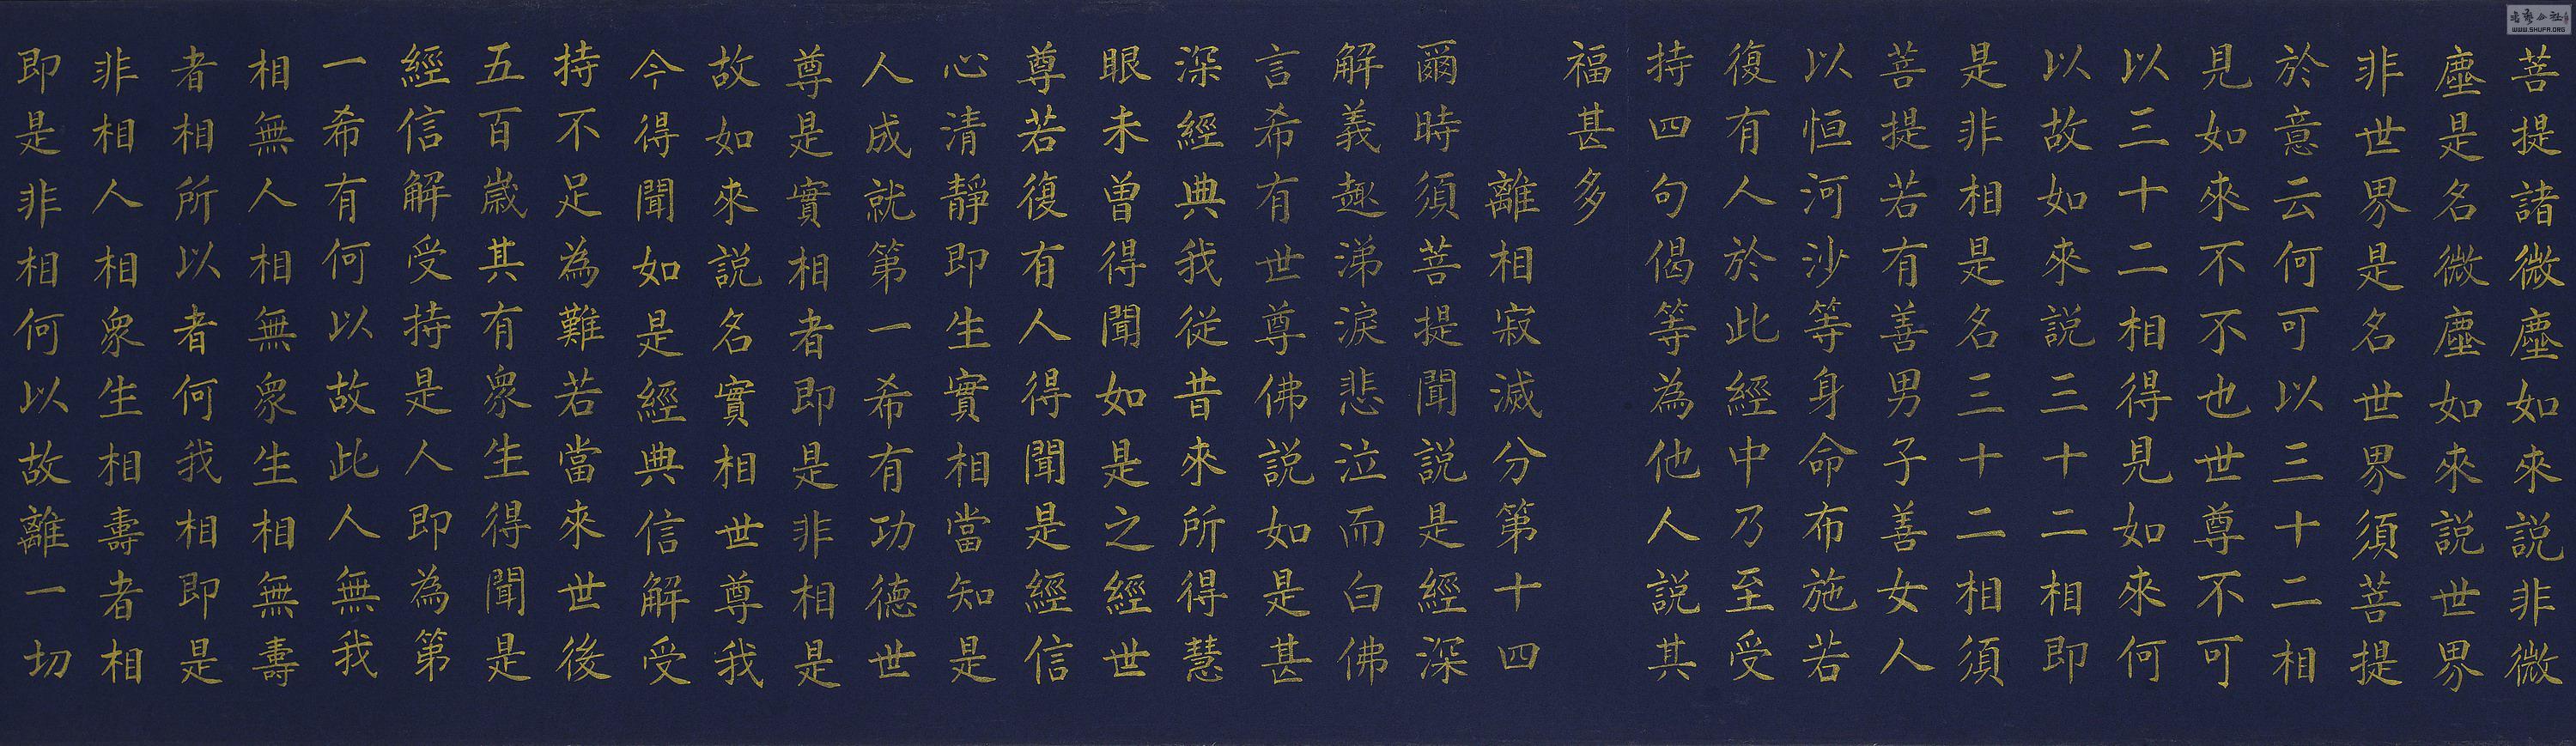 菩提諸微塵如來説非微
塵是名微塵如來説世界
非世界是名世界須菩提
於意云何可以三十二相
見如來不不也世尊不可
以三十二相得見如來何
以故如來説三十二相即
是非相是名三十二相須
菩提若有善男子善女人
以恒河沙等身命布施若
復有人於此經中乃至受
持四句偈等為他人説其
福甚多
離相寂滅分第十四
爾時須菩提聞説是經深
解義趣涕淚悲泣而白佛
言希有世尊佛説如是甚
深經典我從昔來所得慧
眼未曽得聞如是之經世
尊若復有人得聞是經信
心清靜即生實相當知是
人成就第一希有功德世
尊是實相者即是非相是
故如來説名實相世尊我
今得聞如是經典信解受
持不足為難若當來世後
五百歳其有眾生得聞是
經信解受持是人即為第
一希有何以故此人無我
相無人相無眾生相無壽
者相所以者何我相即是
非相人相眾生相壽者相
即是非相何以故離一切
WWW.SHUFA.ORG